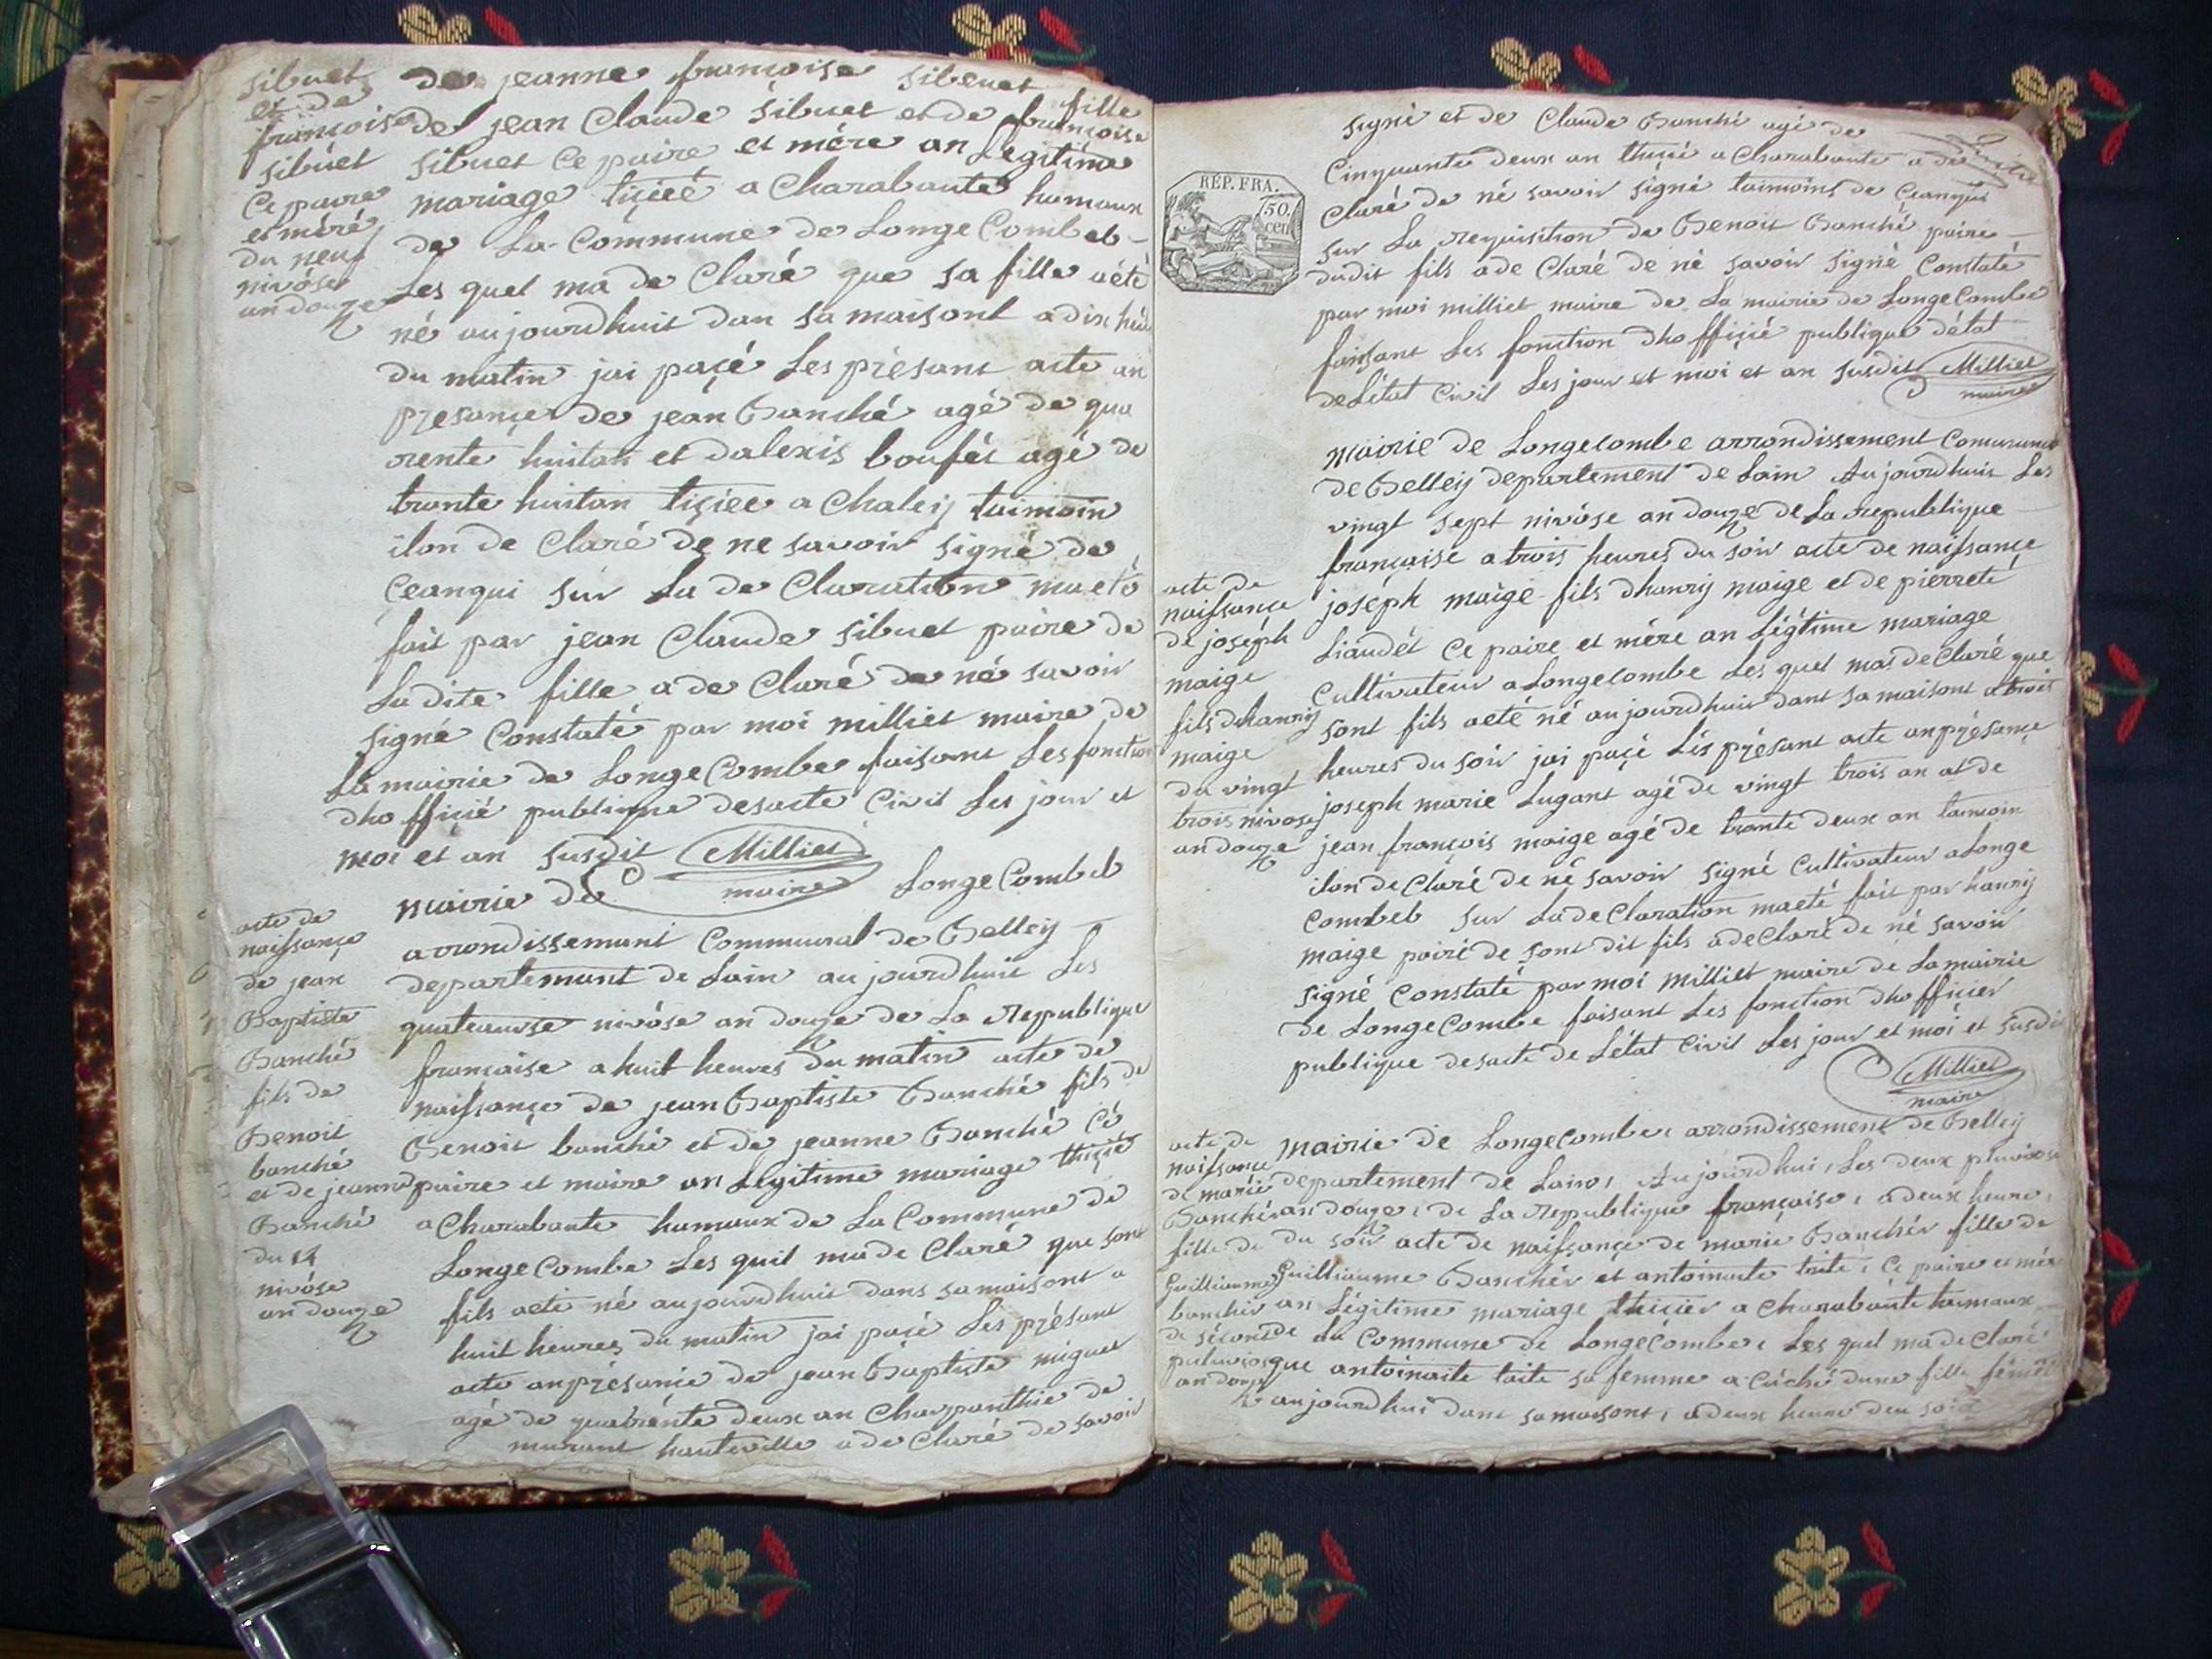 sibuet
et de
françoise
sibuet
Ce paire
et méré
du neuf
nivôse
an douze
de jeanne françoise sibuet fille
de jean Claude sibuet et de françoise
sibuet Ce paire et mére an Legitime
mariage ticiéé a Charabaute hamaux
de La Commune de Longe Combeb
Les quel ma de Claré que sa fille aété
né aujourdhuit dan sa maisont a dix heu
du matin jai paçé Les présant acte an
présançe de jean Banché agé de qua
rente huitan et dalexis boufét agé de
trante huitan ticiéé a Chaley taimoin
ilon de Claré de ne savoir signé de
Ceanqui sur La de Claration maeté
fait par jean Claude sibuet paire de
Ladite fille a de Claré de né savoir
signé Constaté par moi milliet maire de
La mairie de Longe Combe faisant Les fonction
dho fficié publique desacte Civil Les jour et
moi et an susdit Milliet
maire
acte de
naissançe
de jean
Baptiste
Banché
fils de
Benoit
banché
et de jeanne
Banché
du 14
nivôse
an douze
mairie de Longe Combeb
arrondissemant Communal de Belley
departemant de Lain aujourdhuit Les
quateaurse nivôse an douze de La republique
françaisse a huit heures du matin acte de
naissançe de jean Baptiste Banché fils de
Benoit banché et de jeanne Banché Cé
paire et maire an Légitime mariage thiçié
a Charabaute hamaux de La Commune de
Longe Combe Les quil ma de Claré que sont
fils aeté né aujourdhuit dans sa maisont a
huit heures du matin jai paçé Les présant
acte anprésance de jean Baptiste miguet
agé de quatrénte deux an Charpanthie de
murant hauteville a de Claré de savoir
signé et de Claude Banché agé de
Cinquante deux an thiçié a Charabaute a de
Claré de né savoir signé taimoins de Ceanqui
sur La requisition de Benoit Banché paire
dudit fils a de Claré de né savoir signé Constaté
par moi milliet maire de La mairie de Longe Combe
faisant Les fonction dho fficié publique détat
de Létat Civil Les jour et moi et an susdit Milliet
maire
RÉP. FRA.
50.
cen
acte de
naissançe
de joséph
maige
fils dhanrij
maige
du vingt
trois nivose
an douze
mairie de Longecombe arrondissement Communal
de Belleij département de Lain Aujourdhuit Les
vingt sept nivôse an douze de La republique
française a trois heures du soir acte de naissançe
joséph maige fils dhanrij maige et de pierreté
Liaudét Ce paire et mére an Légitime mariage
Cultivateur a Longecombe Les quel mas de Claré que
sont fils aeté né aujourdhuit dant sa maisont a trois
heures du soir jai paçé Lés présant acte anprésançe
joseph marie Lugant agé de vingt trois an at de
jean françois maige agé de trante deux an taimoin
ilon de Claré de né savoir signé Cultivateur a Longe
Combeb sur La de Claration maeté fait par hanrij
maige pairé de sont dit fils a de Claré de né savoir
signé Constaté par moi milliet maire de La mairie
de Longe Combe faisant Les fonction dho fficier
publique desacte de Létat Civil Les jour et moi et susdit
Milliet
maire
acte de
naissance
de marie
Banchér
fille de
Guilliaume
banchér
de séconde
pluviose
an douze
mairie de Longecombe, arrondissement de Belley
département de Lain, Aujourdhui, Les deux pluviose
an douze, de La republique française, a deux heure,
du soir acte de naissançe de marie Banchér fille de
Guilliaume Banchér et antoinaite taite, Ce paire et mér
an Légitime mariage thicier a Charabaute hamaux
de La Commune de Longecombe, Les quel ma de Claré
que antoinaite taite sa femme a Cúché dune fille fémél
aujourdhui dant samaisont, a deux heure deu soir